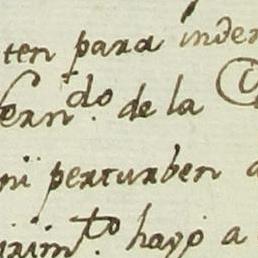 ten para inder
ern.do de la C
ni perturben a
irim.to hayo a